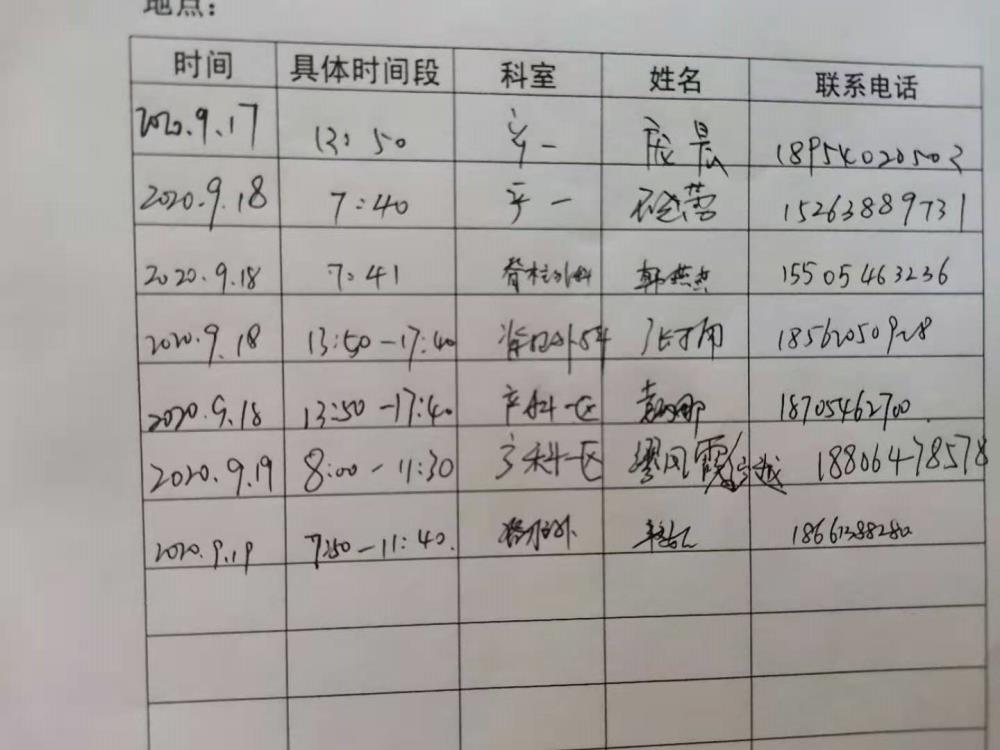 地点：
时间 具体时间段 科室 姓名 联系电话
2020.9.17 13:50 产一 晨 18954020503
2020.9.18 7:40 产一 15263889731
2020.9.18 7:41 脊柱外科 韩燕燕 15505463236
2020.9.18 13:50-17:40 脊柱外科 18562050928
2020.9.18 13:50-17:40 产科一区 娜 18705462700
2020.9.19 8:00-11:30 产科一区 缪风霞 18806478578
2020.9.19 7:50-11:40. 脊柱外